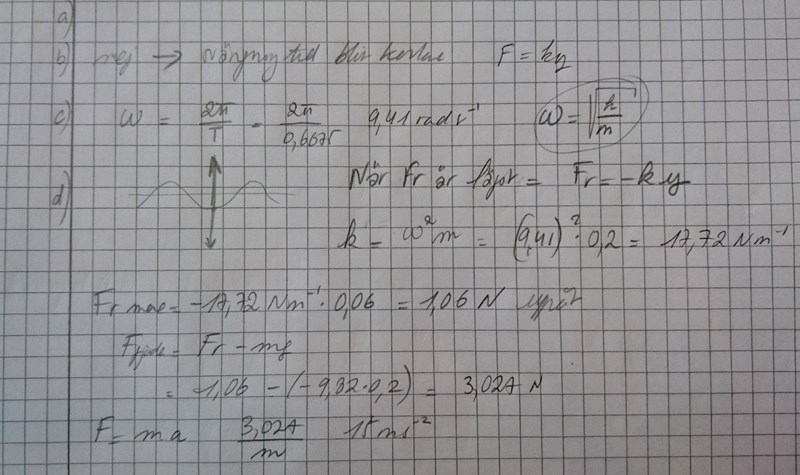 a)
b) nej → svängningstid blir kortare F = ky
c) ω = 2π/T = 2π/0,6675 9,41 rad s⁻¹ ω = √(k/m)
d) När Fr är = Fr = -ky
k = ω²m = (9,41)² · 0,2 = 17,72 Nm⁻¹
Fr max = -17,72 Nm⁻¹ · 0,06 = 1,06 N uppåt
= Fr - mg
= 1,06 - (-9,82·0,2) = 3,024 N
F = ma 3,024/m 15 ms⁻²